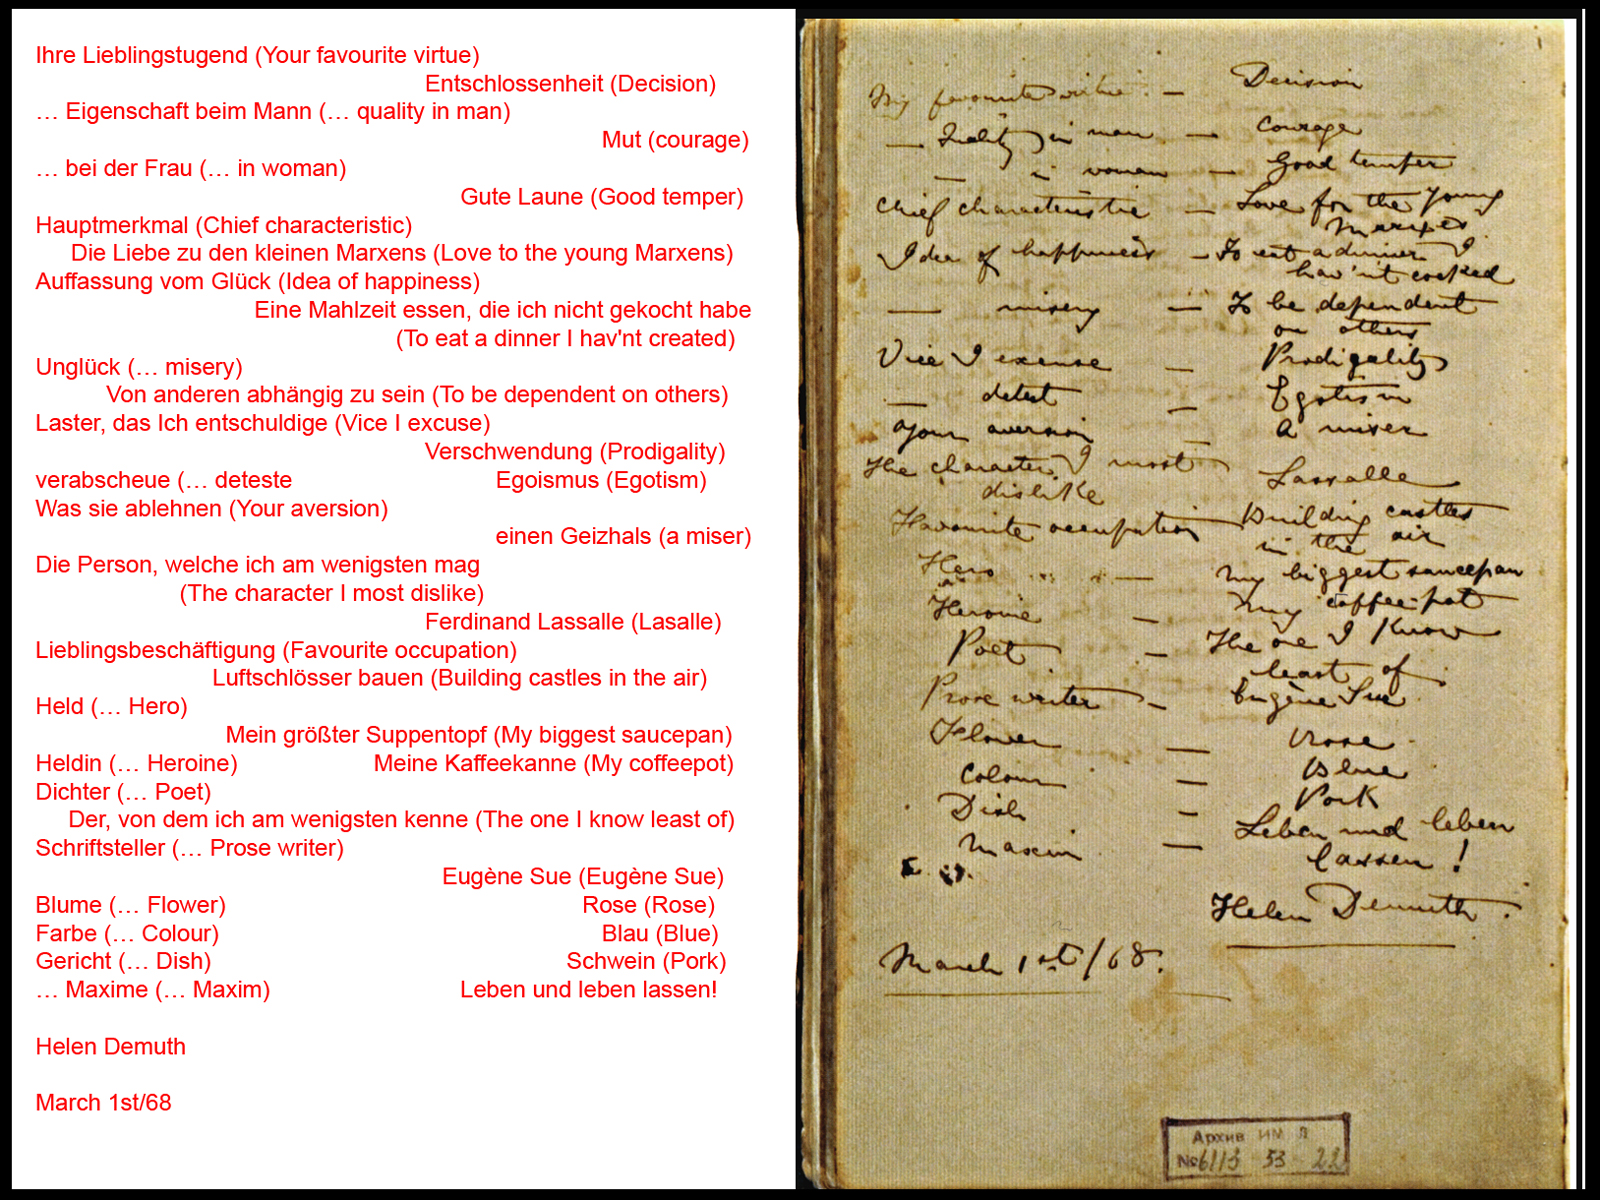 Ihre Lieblingstugend (Your favourite virtue)
Entschlossenheit (Decision)
… Eigenschaft beim Mann (… quality in man)
Mut (courage)
… bei der Frau (… in woman)
Gute Laune (Good temper)
Hauptmerkmal (Chief characteristic)
Die Liebe zu den kleinen Marxens (Love to the young Marxens)
Auffassung vom Glück (Idea of happiness)
Eine Mahlzeit essen, die ich nicht gekocht habe
(To eat a dinner I hav'nt created)
Unglück (… misery)
Von anderen abhängig zu sein (To be dependent on others)
Laster, das Ich entschuldige (Vice I excuse)
Verschwendung (Prodigality)
verabscheue (… deteste Egoismus (Egotism)
Was sie ablehnen (Your aversion)
einen Geizhals (a miser)
Die Person, welche ich am wenigsten mag
(The character I most dislike)
Ferdinand Lassalle (Lasalle)
Lieblingsbeschäftigung (Favourite occupation)
Luftschlösser bauen (Building castles in the air)
Held (… Hero)
Mein größter Suppentopf (My biggest saucepan)
Heldin (… Heroine) Meine Kaffeekanne (My coffeepot)
Dichter (… Poet)
Der, von dem ich am wenigsten kenne (The one I know least of)
Schriftsteller (… Prose writer)
Eugène Sue (Eugène Sue)
Blume (… Flower) Rose (Rose)
Farbe (… Colour) Blau (Blue)
Gericht (… Dish) Schwein (Pork)
… Maxime (… Maxim) Leben und leben lassen!
Helen Demuth
March 1st/68
My favourite virtue — Decision
— Quality in man — Courage
— in woman — Good temper
Chief characteristic — Love for the young
Marxes
Idea of happiness — To eat a dinner I
hav'nt cooked
— misery — To be dependent
on others
Vice I excuse — Prodigality
— detest — Egotism
Your aversion — A miser
The character I most Lassalle
dislike
Favourite occupation Building castles
in the air
Hero — My biggest saucepan
Heroine — My coffee-pot
Poet — The one I know
least of
Prose writer — Eugène Sue
Flower — Rose
Colour — Blue
Dish — Pork
Maxim — Leben und leben
lassen!
Helen Demuth.
March 1st/68.
Архив ИМЛ
№ 6113 53 22